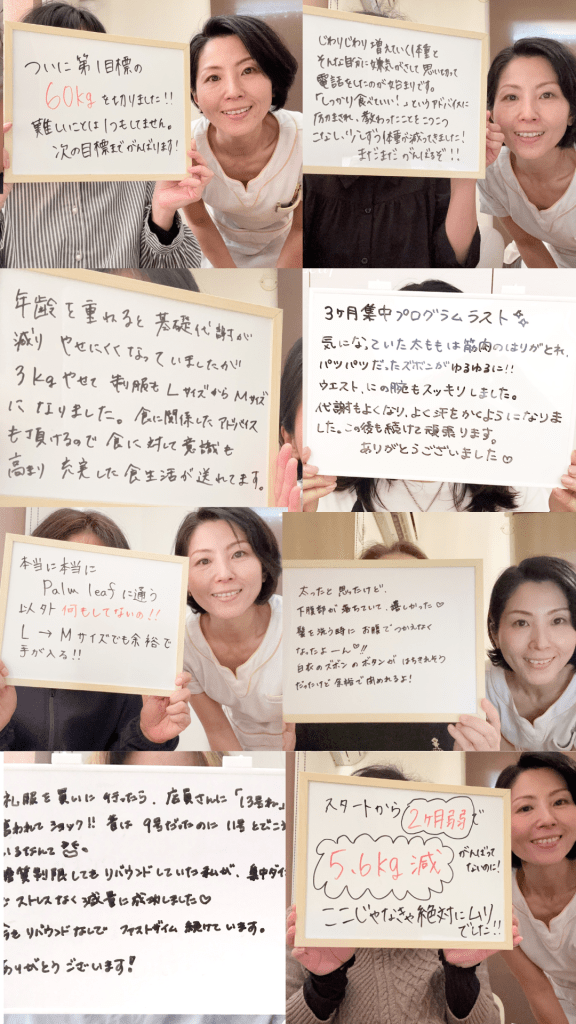 ついに第1目標の
60kgを切りました!!
難しいことは1つもしてません。
次の目標までがんばります!
じわりじわり増えていく体重と
そんな自分に嫌気がさして思い切って
電話をしたのが始まりです。
「しっかり食べていい!」というアドバイスに
励まされ、教わったことをコツコツ
こなし、少しずつ体重が減ってきました!
まだまだがんばるぞ!!
年齢を重ねると基礎代謝が
減り やせにくくなっていましたが
3kgやせて 制服もLサイズからMサイズ
になりました。食に関係したアドバイス
も頂けるので食に対して意識も
高まり 充実した食生活が送れてます。
3ヶ月集中プログラムラスト
気になっていた太ももは筋肉のはりがとれ、
パツパツだったズボンがゆるゆるに!!
ウエスト、二の腕もスッキリしました。
代謝もよくなり、よく汗をかくようになりま
した。この後も続けて頑張ります。
ありがとうございました♡
本当に本当に
Palm leafに通う
以外何もしてないの!!
L→Mサイズでも余裕で
手が入る!!
太ったと思ったけど、
下腹部が落ちていて、嬉しかった♡
髪を洗う時にお腹でつかえなく
なったよーん♡!!
白衣のズボンのボタンがはちきれそう
だったけど余裕で閉めれるよ!
礼服を買いに行ったら、店員さんに「13号ね」
言われてショック!! 昔は9号だったのに11号とびこ
いるなんて
糖質制限してもリバウンドしていた私が、集中ダイ
ストレスなく減量に成功しました♡
今もリバウンドなしで ファストザイム続けています。
ありがとうございます!
スタートから2ヶ月弱で
5.6kg減
がんばって
ないのに!
ここじゃなきゃ絶対にムリ
でした!!